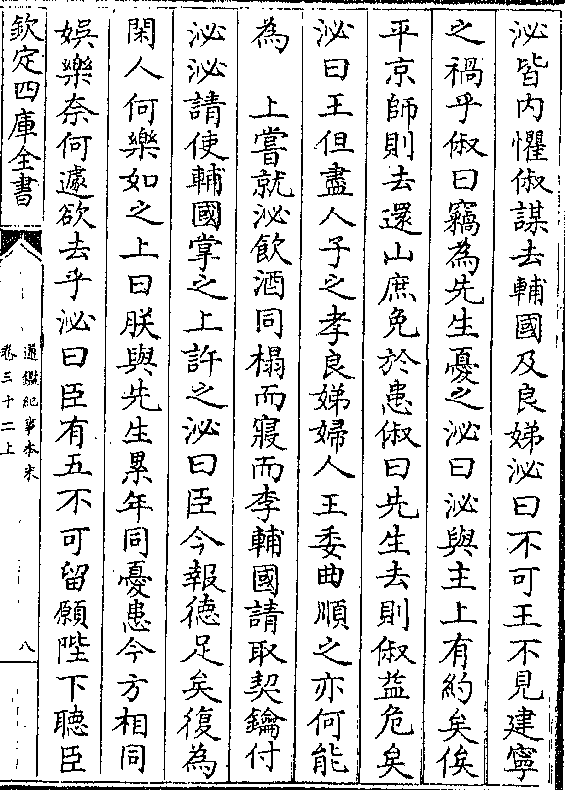 泌皆内懼俶謀去輔國及良娣泌曰不可王不見建寧
之禍乎俶曰竊為先生憂之泌曰泌與主上有約矣俟
平京師則去還山庶免於患俶曰先生去則俶益危矣
泌曰王但盡人子之孝良娣婦人王委曲順之亦何能
為　上嘗就泌飲酒同榻而寢而李輔國請取契鑰付
泌泌請使輔國掌之上許之泌曰臣今報徳足矣復為
閑人何樂如之上曰朕與先生累年同憂患今方相同
娛樂奈何遽欲去乎泌曰臣有五不可留願陛下聽臣
欽定四庫全書
通鑑紀事本末
卷三十二上
八